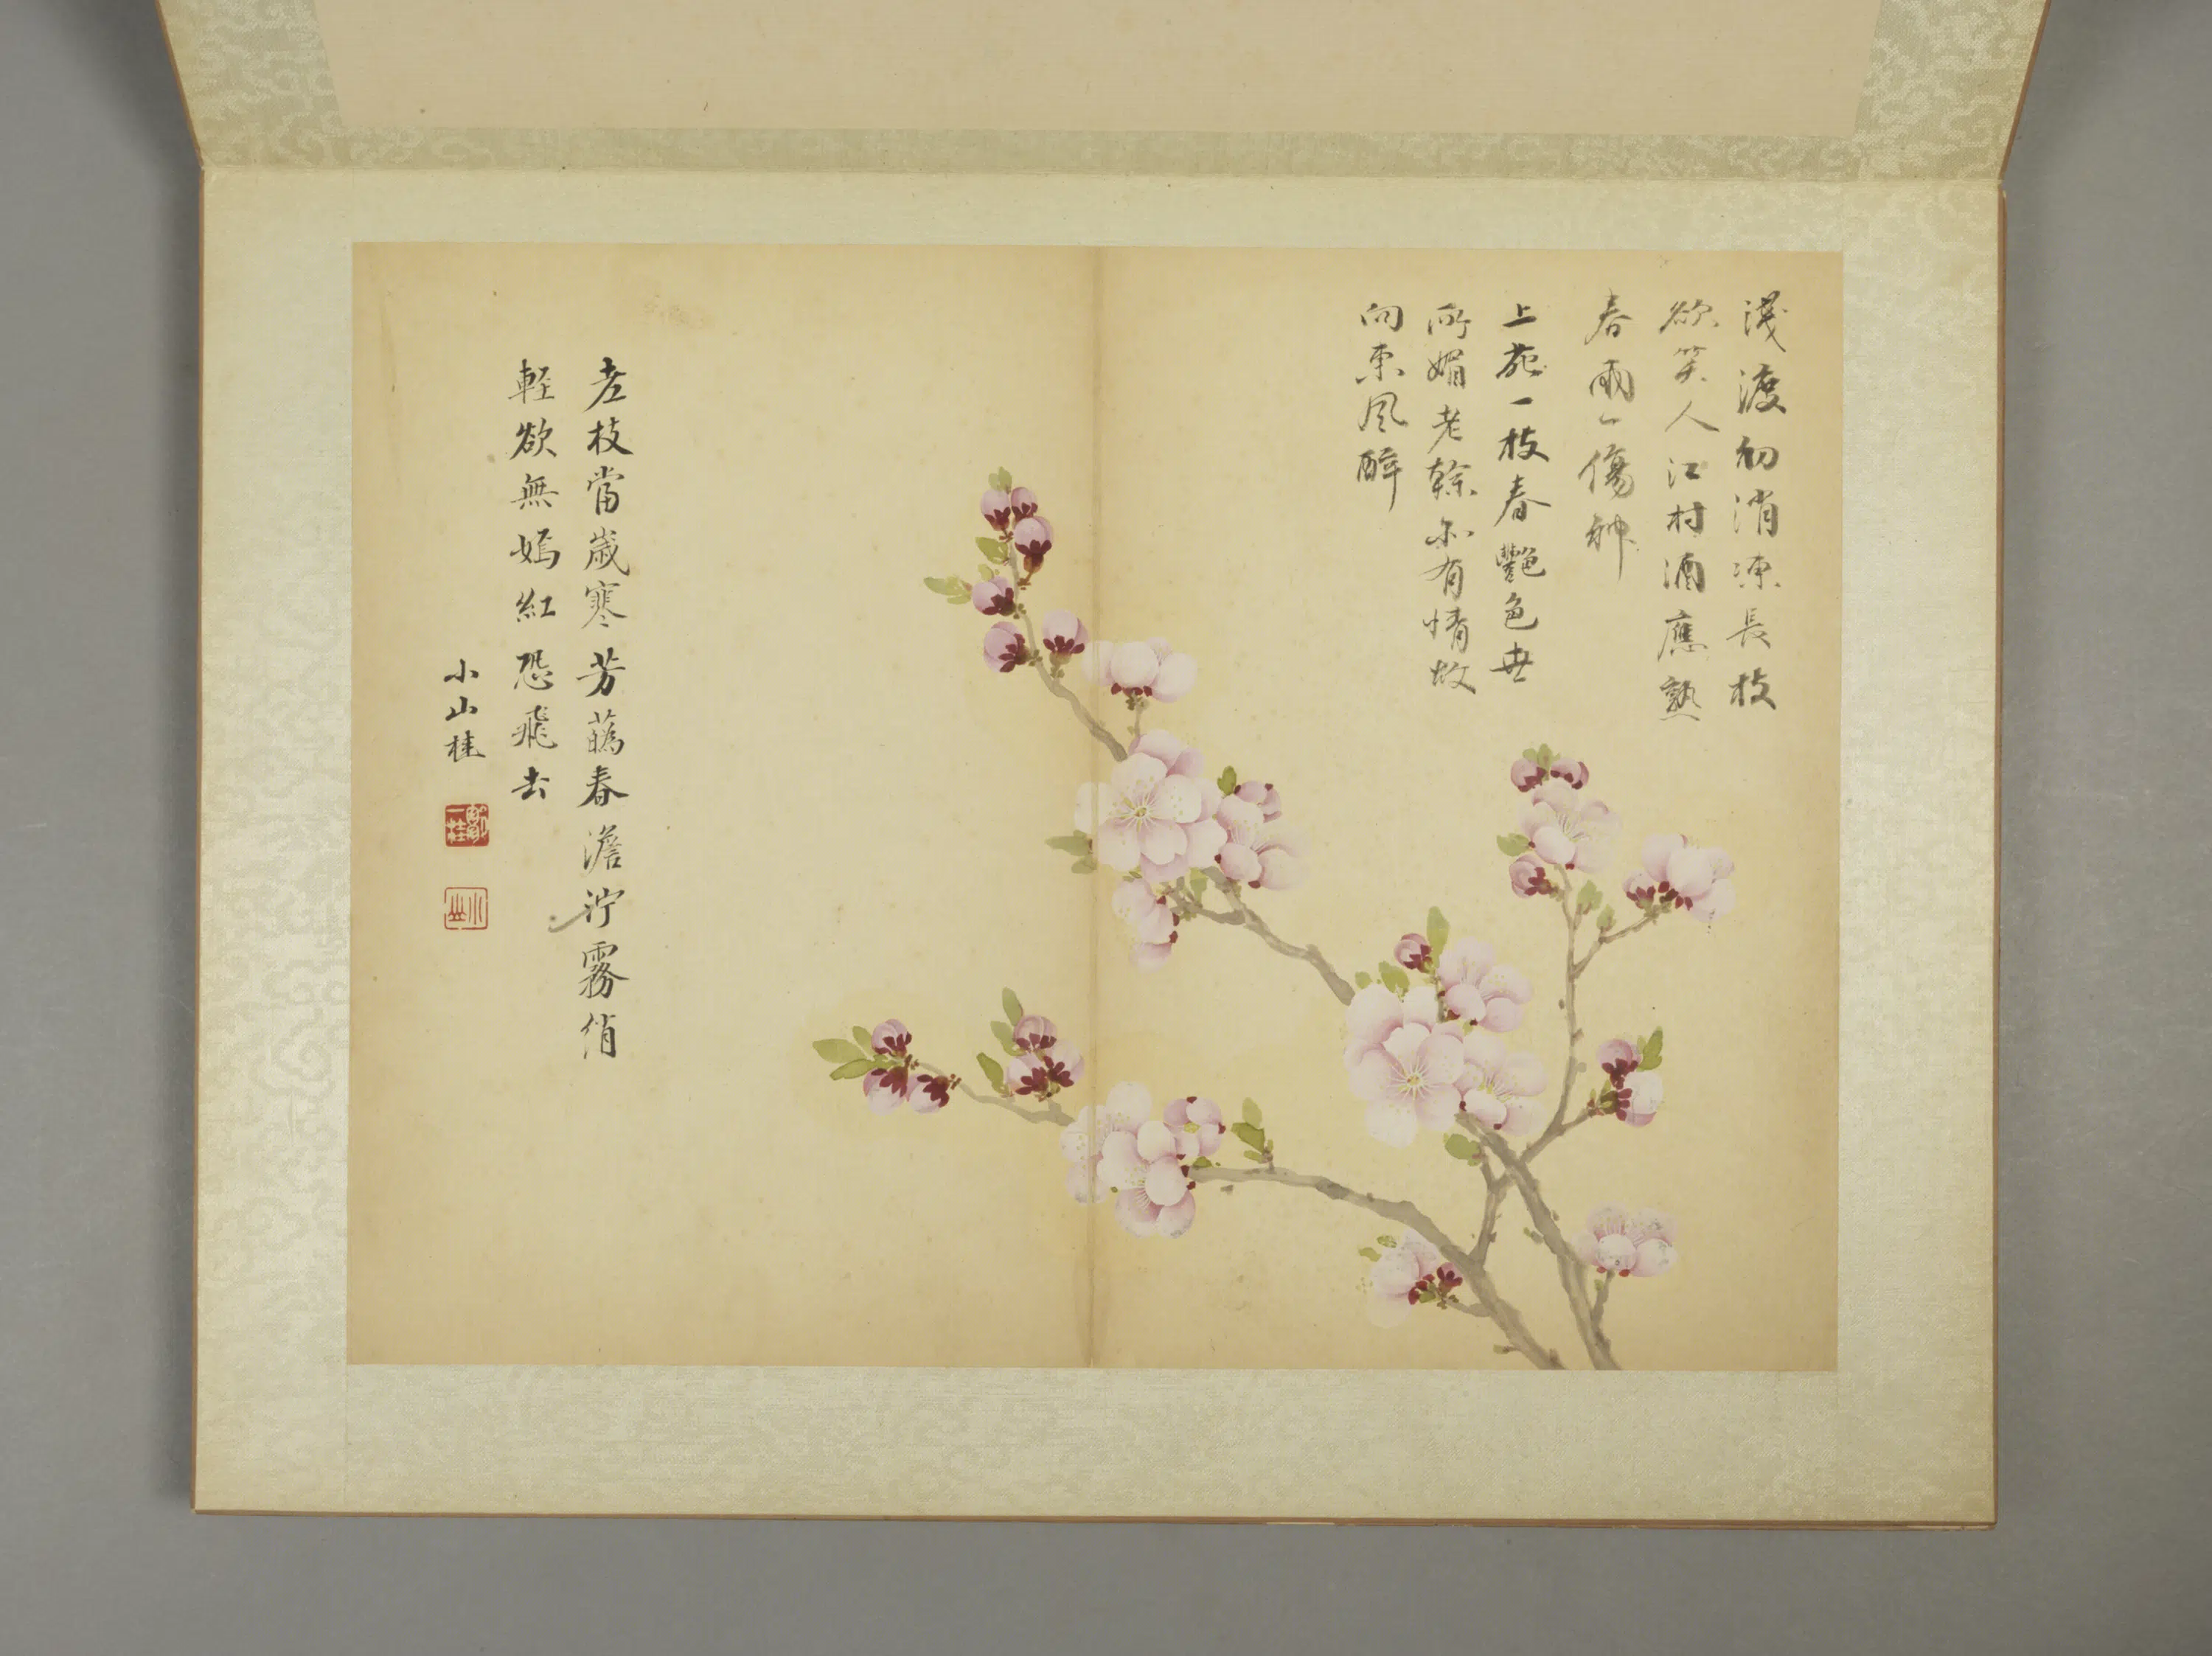 淺渡初消凍長枝
欲笑人江村酒應熟
春雨一傷神
上苑一枝春艷色無
所媚老榦亦有情故
向東風醉
老枝當歲寒芳蘤春澹泞霧綃
輕欲無嫣紅恐飛去
小山桂
鄒一桂
小山